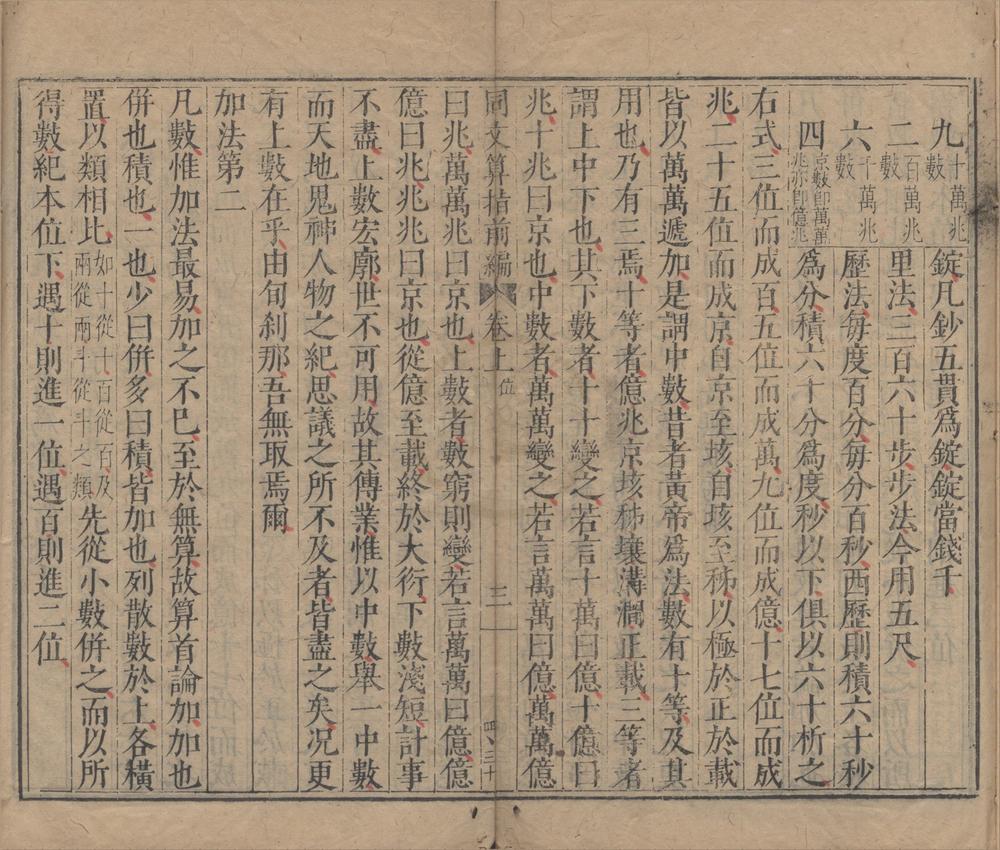 九十萬兆數 錠凡鈔五貫爲錠錠當錢千
二百萬兆數 里法三百六十步步法今用五尺
六千萬兆數 歷法每度百分每分百秒西歷則積六十秒
四京數即萬萬兆亦即億兆 爲分積六十分爲度秒以下俱以六十析之
右式三位而成百五位而成萬九位而成億十七位而成
兆二十五位而成京自京至垓自垓至秭以極於正於載
皆以萬萬遞加是謂中數昔者黃帝爲法數有十等及其
用也乃有三焉十等者億兆京垓秭壤溝澗正載三等者
謂上中下也其下數者十十變之若言十萬曰億十億曰
兆十兆曰京也中數者萬萬變之若言萬萬曰億萬萬億
同文算指前編 卷上 位 三 四、三十
曰兆萬萬兆曰京也上數者數窮則變若言萬萬曰億億
億曰兆兆兆曰京也從億至載終於大衍下數淺短計事
不盡上數宏廓世不可用故其傳業惟以中數舉一中數
而天地鬼神人物之紀思議之所不及者皆盡之矣况更
有上數在乎由旬刹那吾無取焉爾
加法第二
凡數惟加法最易加之不已至於無算故算首論加加也
併也積也一也少曰併多曰積皆加也列散數於上各橫
置以類相比如十從十百從百及兩從兩斗從斗之類先從小數併之而以所
得數紀本位下遇十則進一位遇百則進二位